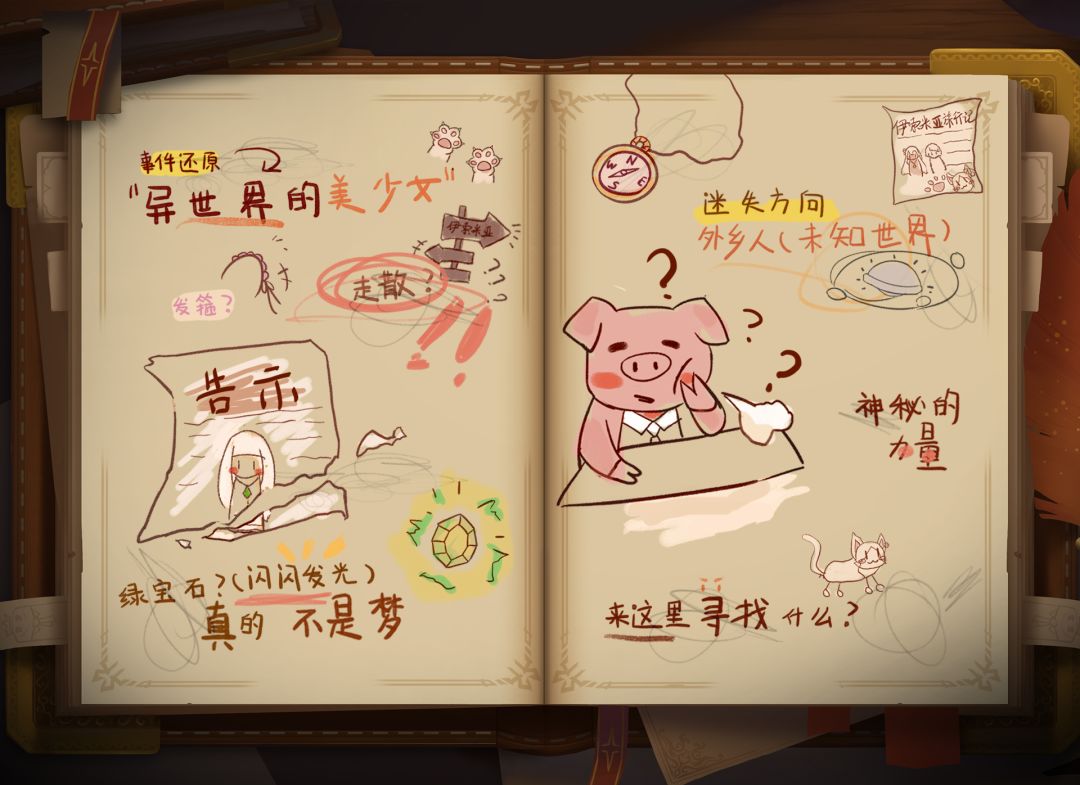 事件还原
“异世界的美少女”
伊索米亚
走散？
发箍？
告示
绿宝石？（闪闪发光）
真的 不是梦
伊索米亚旅行记
N
迷失方向
外乡人（未知世界）
？
？
？
神秘的
力量
来这里寻找什么？